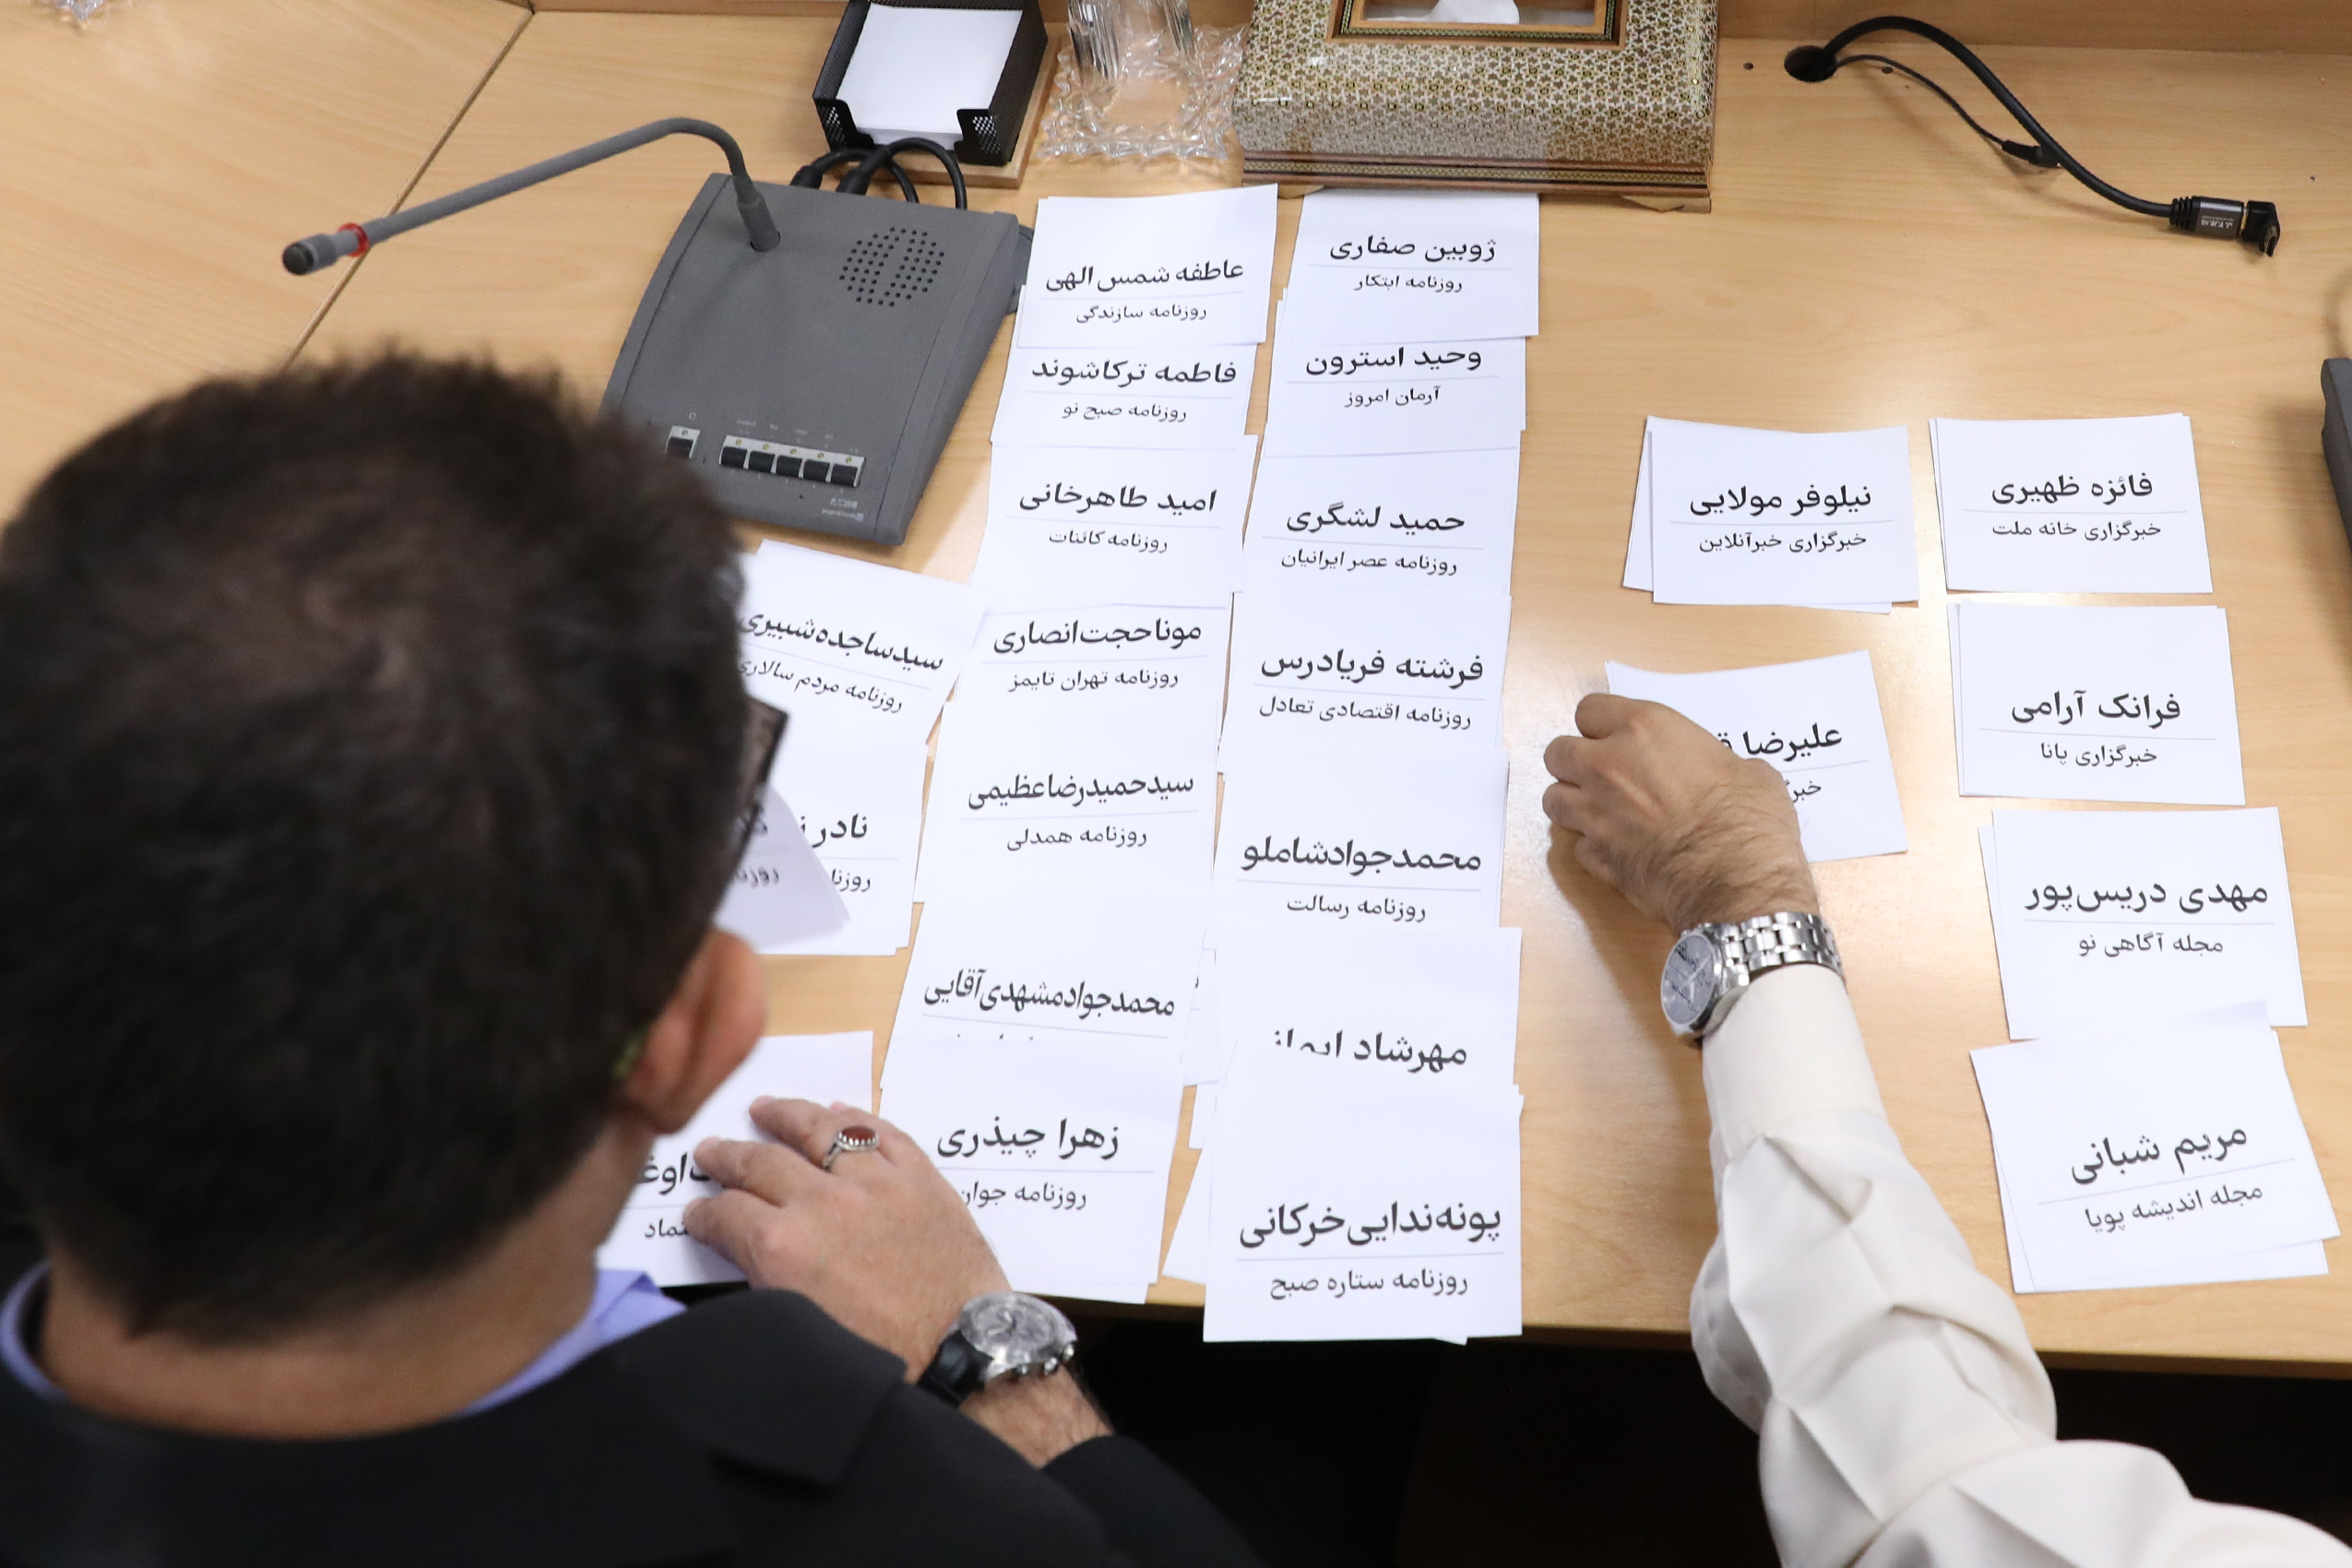 ژوبین صفاری
روزنامه ابتکار
وحید استرون
آرمان امروز
حمید لشگری
روزنامه عصر ایرانیان
فرشته فریادرس
روزنامه اقتصادی تعادل
محمدجوادشاملو
روزنامه رسالت
مهرشاد
پونه‌ندایی‌خرکانی
روزنامه ستاره صبح
عاطفه شمس الهی
روزنامه سازندگی
فاطمه ترکاشوند
روزنامه صبح نو
امید طاهرخانی
روزنامه کائنات
موناحجت‌انصاری
روزنامه تهران تایمز
سیدحمیدرضاعظیمی
روزنامه همدلی
محمدجوادمشهدی‌آقایی
زهرا چیذری
روزنامه جوان
سیدساجده‌شبیری
روزنامه مردم سالاری
نادر
فائزه ظهیری
خبرگزاری خانه ملت
فرانک آرامی
خبرگزاری پانا
مهدی دریس‌پور
مجله آگاهی نو
مریم شبانی
مجله اندیشه پویا
نیلوفر مولایی
خبرگزاری خبرآنلاین
علیرضا